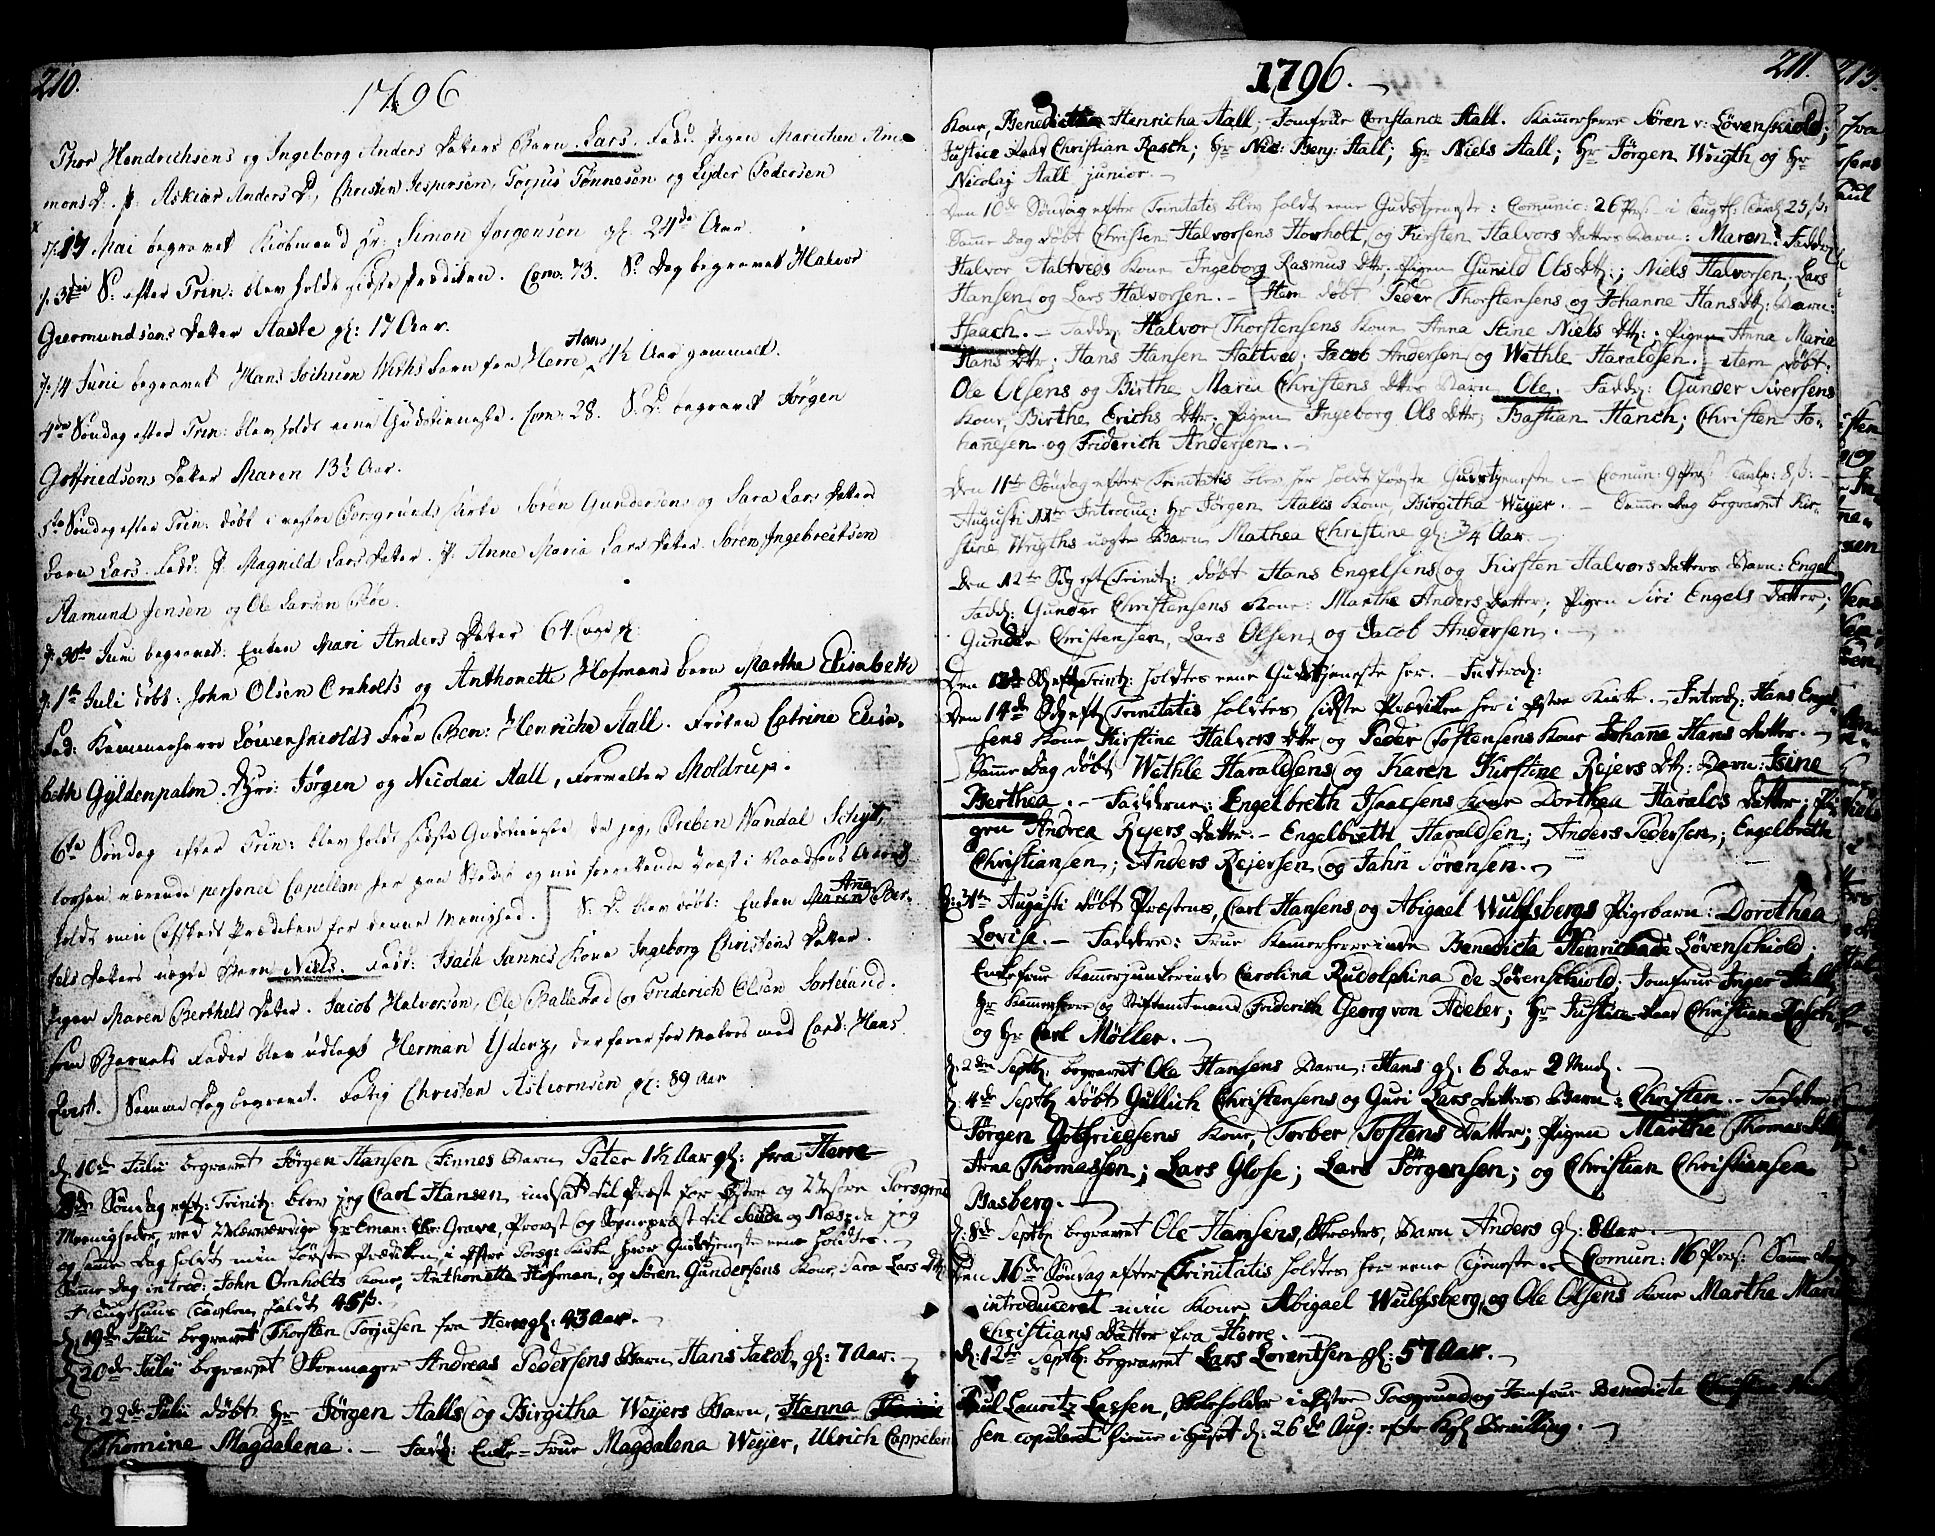 210.
1796
Thor Hendrichsens og Ingeborg Anders Datters Barn Lars. Fadd: Pigen Marichen Am¬
mons D. P: Askiær Anders D., Christen Jespersen, Torjus Tønnesen og Ejder Pedersen
d. 17 Mai begravet Kiøbmand Hr: Simon Jørgensen gl. 24de Aar
d. 3die S: efter Trin: blev holdt sidste Prædiken. Com: 73. S: Dag begravet Halvor
Giermundsens Datter Aaste gl: 17 Aar.
d. 14 Junii begravet Hans Jochum Wriths Barn fra Herre Hans 1½ Aar gammelt.
4de Søndag efter Trin: blev holdt eene Gudstieneste. Com: 28. S. D: begravet Jørgen
Gotfriedsens Datter Maren 13½ Aar.
5te Søndag efter Trin: døbt i vestre Porsgrunds Kirke Søren Gundersens og Sara Lars Datters
Barn Lars. Fadd: P. Magnild Lars Datter. P. Anne Maria Lars Datter. Søren Ingebretsen
Aamund Jensen og Ole Larsen Røe.
d. 30te Juni begravet: Enken Mari Anders Datter 64 Aar gl:
d. 1te Juli døbt: John Olsen Ornholts og Anthonette Hofmans Barn Martha Elisabeth
Fad: Kammerherre Løvenskiolds Frue Ben: Henriche Aall. Frøken Catrine Elisa¬
beth Gyldenpalm. Hrr: Jørgen og Nicolai Aall, Forvalter Moldrup.
6te Søndag efter Trin: blev holdt sidste Gudstieneste, da jeg, Preben Wandal Schyt,
værende personel Capellan her paa Stedet og nu
holdt min Afskeds Prædiken for denne Menighed. S. D. blev døbt: Enken Maren Ane Ber¬
tels Datters uægte Barn Niels. Fadd: Isach Jannes Kone Ingeborg Christens Datter.
Pigen Maren Berthels Datter. Jacob Halvorsen, Ole Ballestad og Friderich Olsen Sortesund.
som Barnets Fader blev udlagt Herman Yderz, der farer for Matros med Capt: Hans
Qvist. Samme Dag begravet. Fattig Christen Aslcornsen gl: 89 Aar
d. 10de Julii begravet Jørgen Hansen Finnes Barn Peter 1½ Aar gl: fra Herre
8de Søndag eft: Trinit: blev jeg Carl Hansen indsat til Præst for Østre og Vestre Porsgrund
Meenigheder, ved Velærværdige Hr Eman: Grave, Provst og Sognepræst til Seude og Næs; da jeg
og samme Dag holdt min første Prædiken, i Østre Porsg: Kirke, hvor Gudstjeneste eene holdtes.
Samme Dag introd: John Ornholts Kone, Anthonette Hofman, og Søren Gundersens Kone, Sara Lars Dtt
I Tugthuus Tavlen faldt 45 ß.
d. 19de Julii begravet Thorsten Torjusen fra Herre gl: 43 Aar.
d. 20de Julii begravet Skoemager Andreas Pedersens Barn Hans Jacob, gl: 7 Aar.
d: 22de Julii døbt Hr Jørgen Aalls og Birgitha Weyers Barn, Hanna
Thomine Magdalena. — Fadd: Enke-Frue Magdalena Weyer, Ulrich Cappelen
211.
1796.
Kone, Benedictha Henricha Aall; Jomfrue Constance Aall. Kamerherre Søren v: Løvenskiold;
Justice Raad Christian Rasch; Hr Nic: Benj: Aall; Hr Niels Aall; Hr Jørgen Wrigth og Hr
Nicolaj Aall junior.
Den 10de Søndag efter Trinitatis blev holdt eene Gudstjeneste: Comunic: 26 Pers: i Tugth: Tavl: 25 ß:
Samme Dag døbt Christen Halvorsens Hovholt, og Kirsten Halvors Datters Barn: Maren. Fadd:
Halvor Aaltveds Kone Ingeborg Rasmus Dtt; Pigen Gunild Ols Dtt:; Niels Halvorsen, Lars
Hansen og Lars Halvorsen. — Item døbt Peder Thorstensens og Johanne Hans Dtt: Barn:
Isaach. — Fadd: Halvor Thorstensens Kone Anna Stine Niels Dtt:; Pigen Anna Maria
Hans Dtt; Hans Hansen Aaltved; Jacob Andersen og Wethle Haraldsen. — item døbt:
Ole Olsens og Birthe Maria Christens Dttr Barn Ole. — Fadd: Gunder Siversens
Kone, Birthe Erichs Dttr; Pigen Ingeborg Ols Dttr; Bastian Hanch; Christen Jo¬
hannesen og Friderich Andersen.
Den 11te Søndag efter Trinitatis blev her holdt første Gudstjeneste. — Comun: 9 Pers: Tavle: 8 ß:
Augusti 11te Introdu: Hr Jørgen Aalls Kone, Birgitha Weyer. — Samme Dag begravet Kir¬
stine Wrigths uægte Barn Mathea Christine gl: ¾ Aar.
Den 12te Sdg eft Trinit: døbt Hans Engelsens og Kirsten Halvors Datters Barn: Engel
Fadd: Gunder Christensens Kone: Marthe Anders Datter; Pigen Siri Engels Datter;
Gunder Christensen, Lars Olsen og Jacob Andersen.
Den 13de Sdg eft Trinit: holdtes eene Gudstjeneste her. — Introd:
Den 14de Sdg eft Trinitatis holdtes sidste Prædiken her i Østre Kirke. — Introd: Hans Engel¬
sens Kone Kirstine Halvors Dttr og Peder Tostensens Kone Johanne Hans Datter.
Samme Dag døbt Wethle Haraldsens og Karen Kirstine Rejers Dtt: Barn: Isine
Berthea. — Fadderne: Engelbreth Isaacsens Kone Dorthea Haralds Datter; Pi¬
gen Andrea Rejers Datter. — Engelbreth Haraldsen; Anders Pedersen; Engelbreth
Christiansen; Anders Rejersen og Jahn Sørensen.
d: 31te Augusti døbt Præstens, Carl Hansens og Abigael Wulfsbergs Pigebarn: Dorothea
Lovise. — Faddere: Frue Kamerherreinde Benedicta Henricha de Løvenschiold;
Enkefrue Kamerjunkerinde Carolina Rudolphina de Løvenschiold; Jomfrue Inger Aall;
Hr Kammerherre og Stiftamtmand Friderich Georg von Adeler; Hr Justice-Raad Christian Rasch
og Hr Carl Møller.
d: 2den Septbr: begravet Ole Hansens Barn: Hans gl: 6 Aar 2 Mnd.
d: 4de Septbr døbt Gullich Christensens og Guri Lars Datters Barn: Christen. — Faddere:
Jørgen Gotfriedsens Kone, Torber Tostens Datter; Pigen Marthe Thomas Datter
Arne Thomassen; Lars Glose; Lars Jørgensen; og Christian Christiansen
Basberg.
d: 8de Septbr begravet Ole Hansens, Skræders, Barn Anders gl: 8 Aar.
Den 16de Søndag efter Trinitatis holdtes her eene Tjeneste. Comun: 16 Pers: Samme Dag
introduceret min Kone Abigael Wulfsberg, og Ole Olsens Kone Marthe Maria
Christians Datter fra Herre.
d: 12te Septbr: begravet Lars Lorentsen gl: 57 Aar.
Poul Lauretz Lassen, Skoleholder i Østre Porsgrund og Jomfrue Benedicte Christine
sen copuleret hiemme i Huset d: 26de Aug: efter Kgl Bevilling.